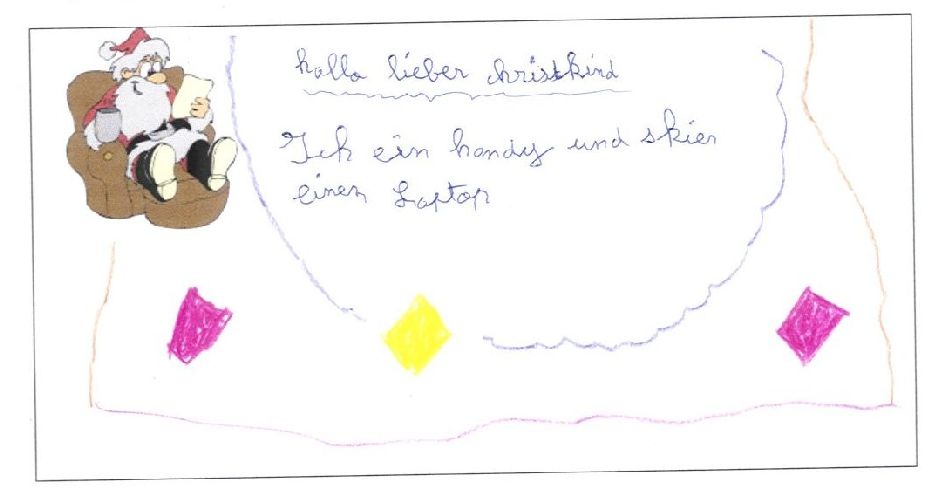 hallo lieber christkind
Ich ein handy und skier
einen Laptop